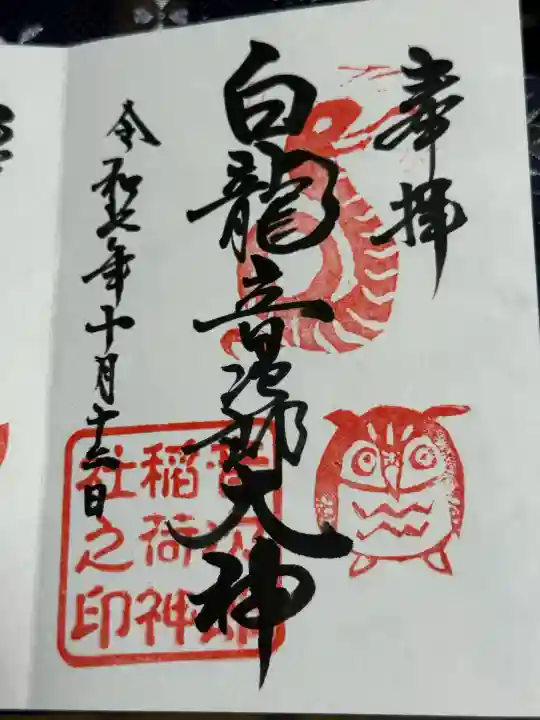 奉拝
白龍音次郎大神
令和七年十月十二日
音次郎
稲荷神
社之印